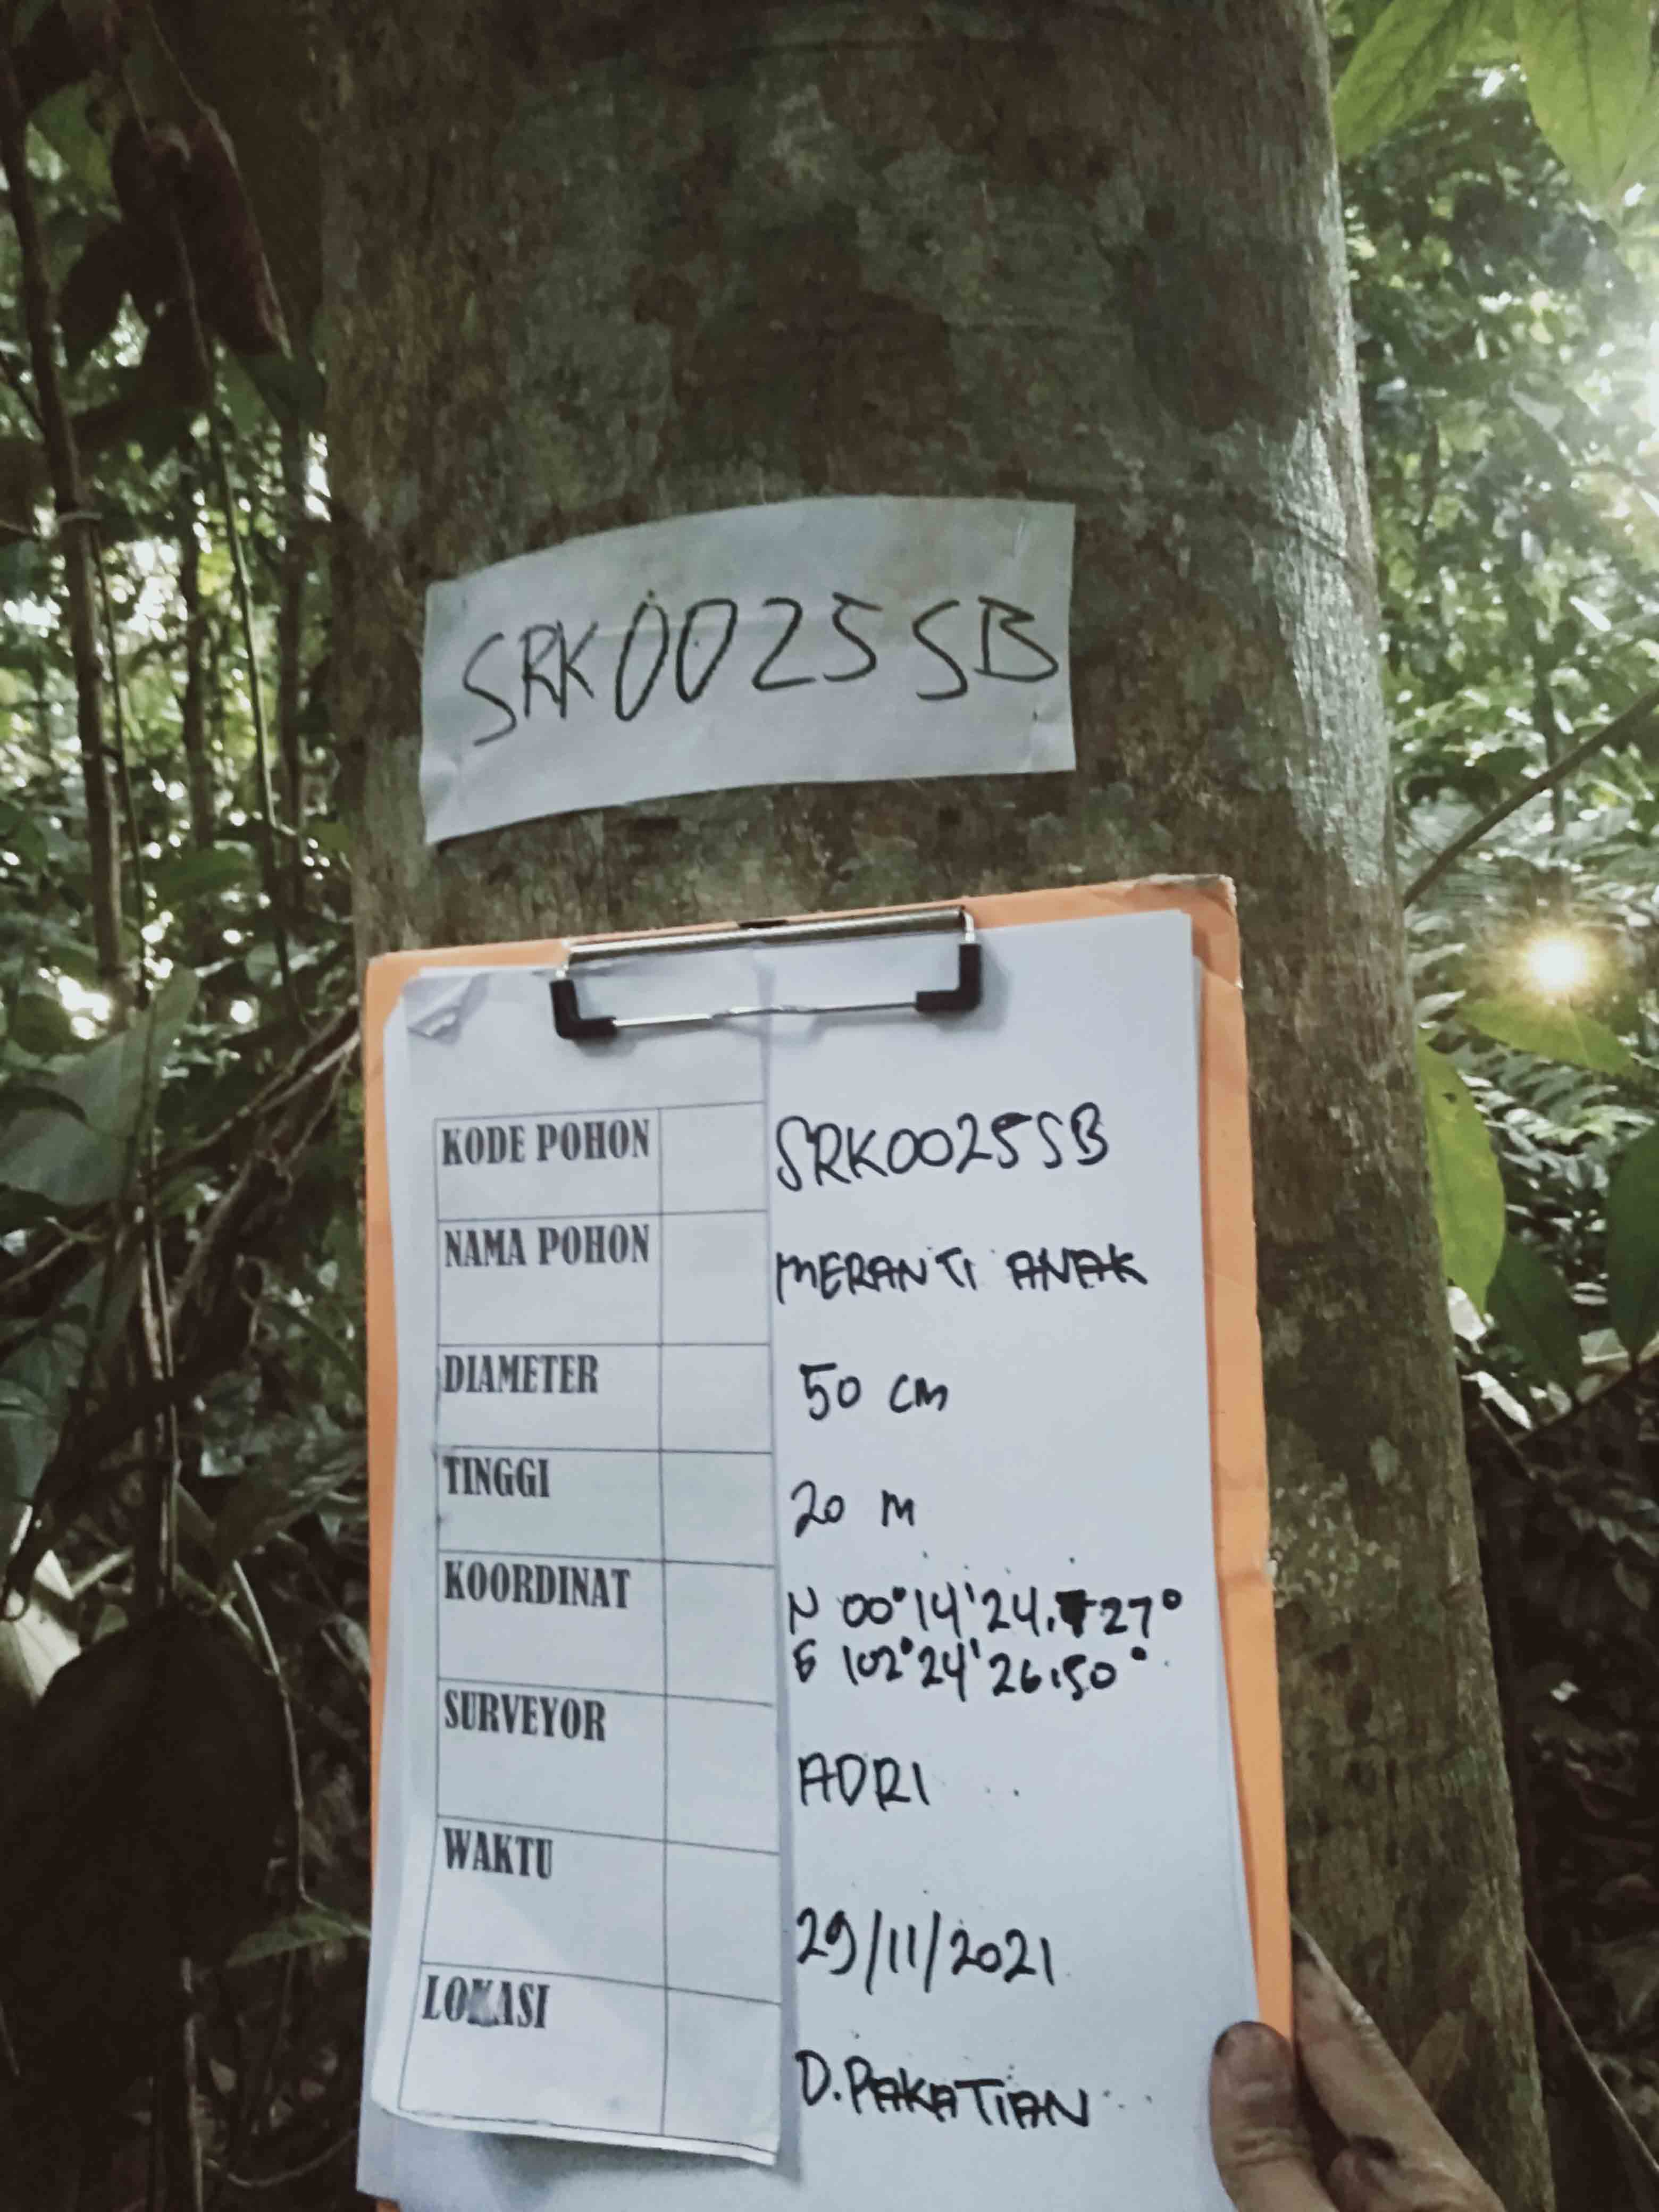 SRK0025SB
KODE POHON SRK0025SB
NAMA POHON MERANTI ANAK
DIAMETER 50 cm
TINGGI 20 m
KOORDINAT N 00°14'24.27°
E 102°24'26.50°
SURVEYOR ADRI
WAKTU 29/11/2021
LOKASI D.PAKATIAN